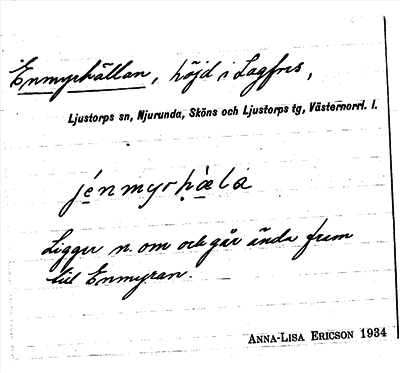 Enmyrhällan, höjd i Lagfors,
Ljustorps sn, Njurunda, Sköns och Ljustorps tg, Västernorrl. l.
jénmyrḥæ̀la
Ligger n. om och går ända fram
till Enmyran.
ANNA-LISA ERICSON 1934